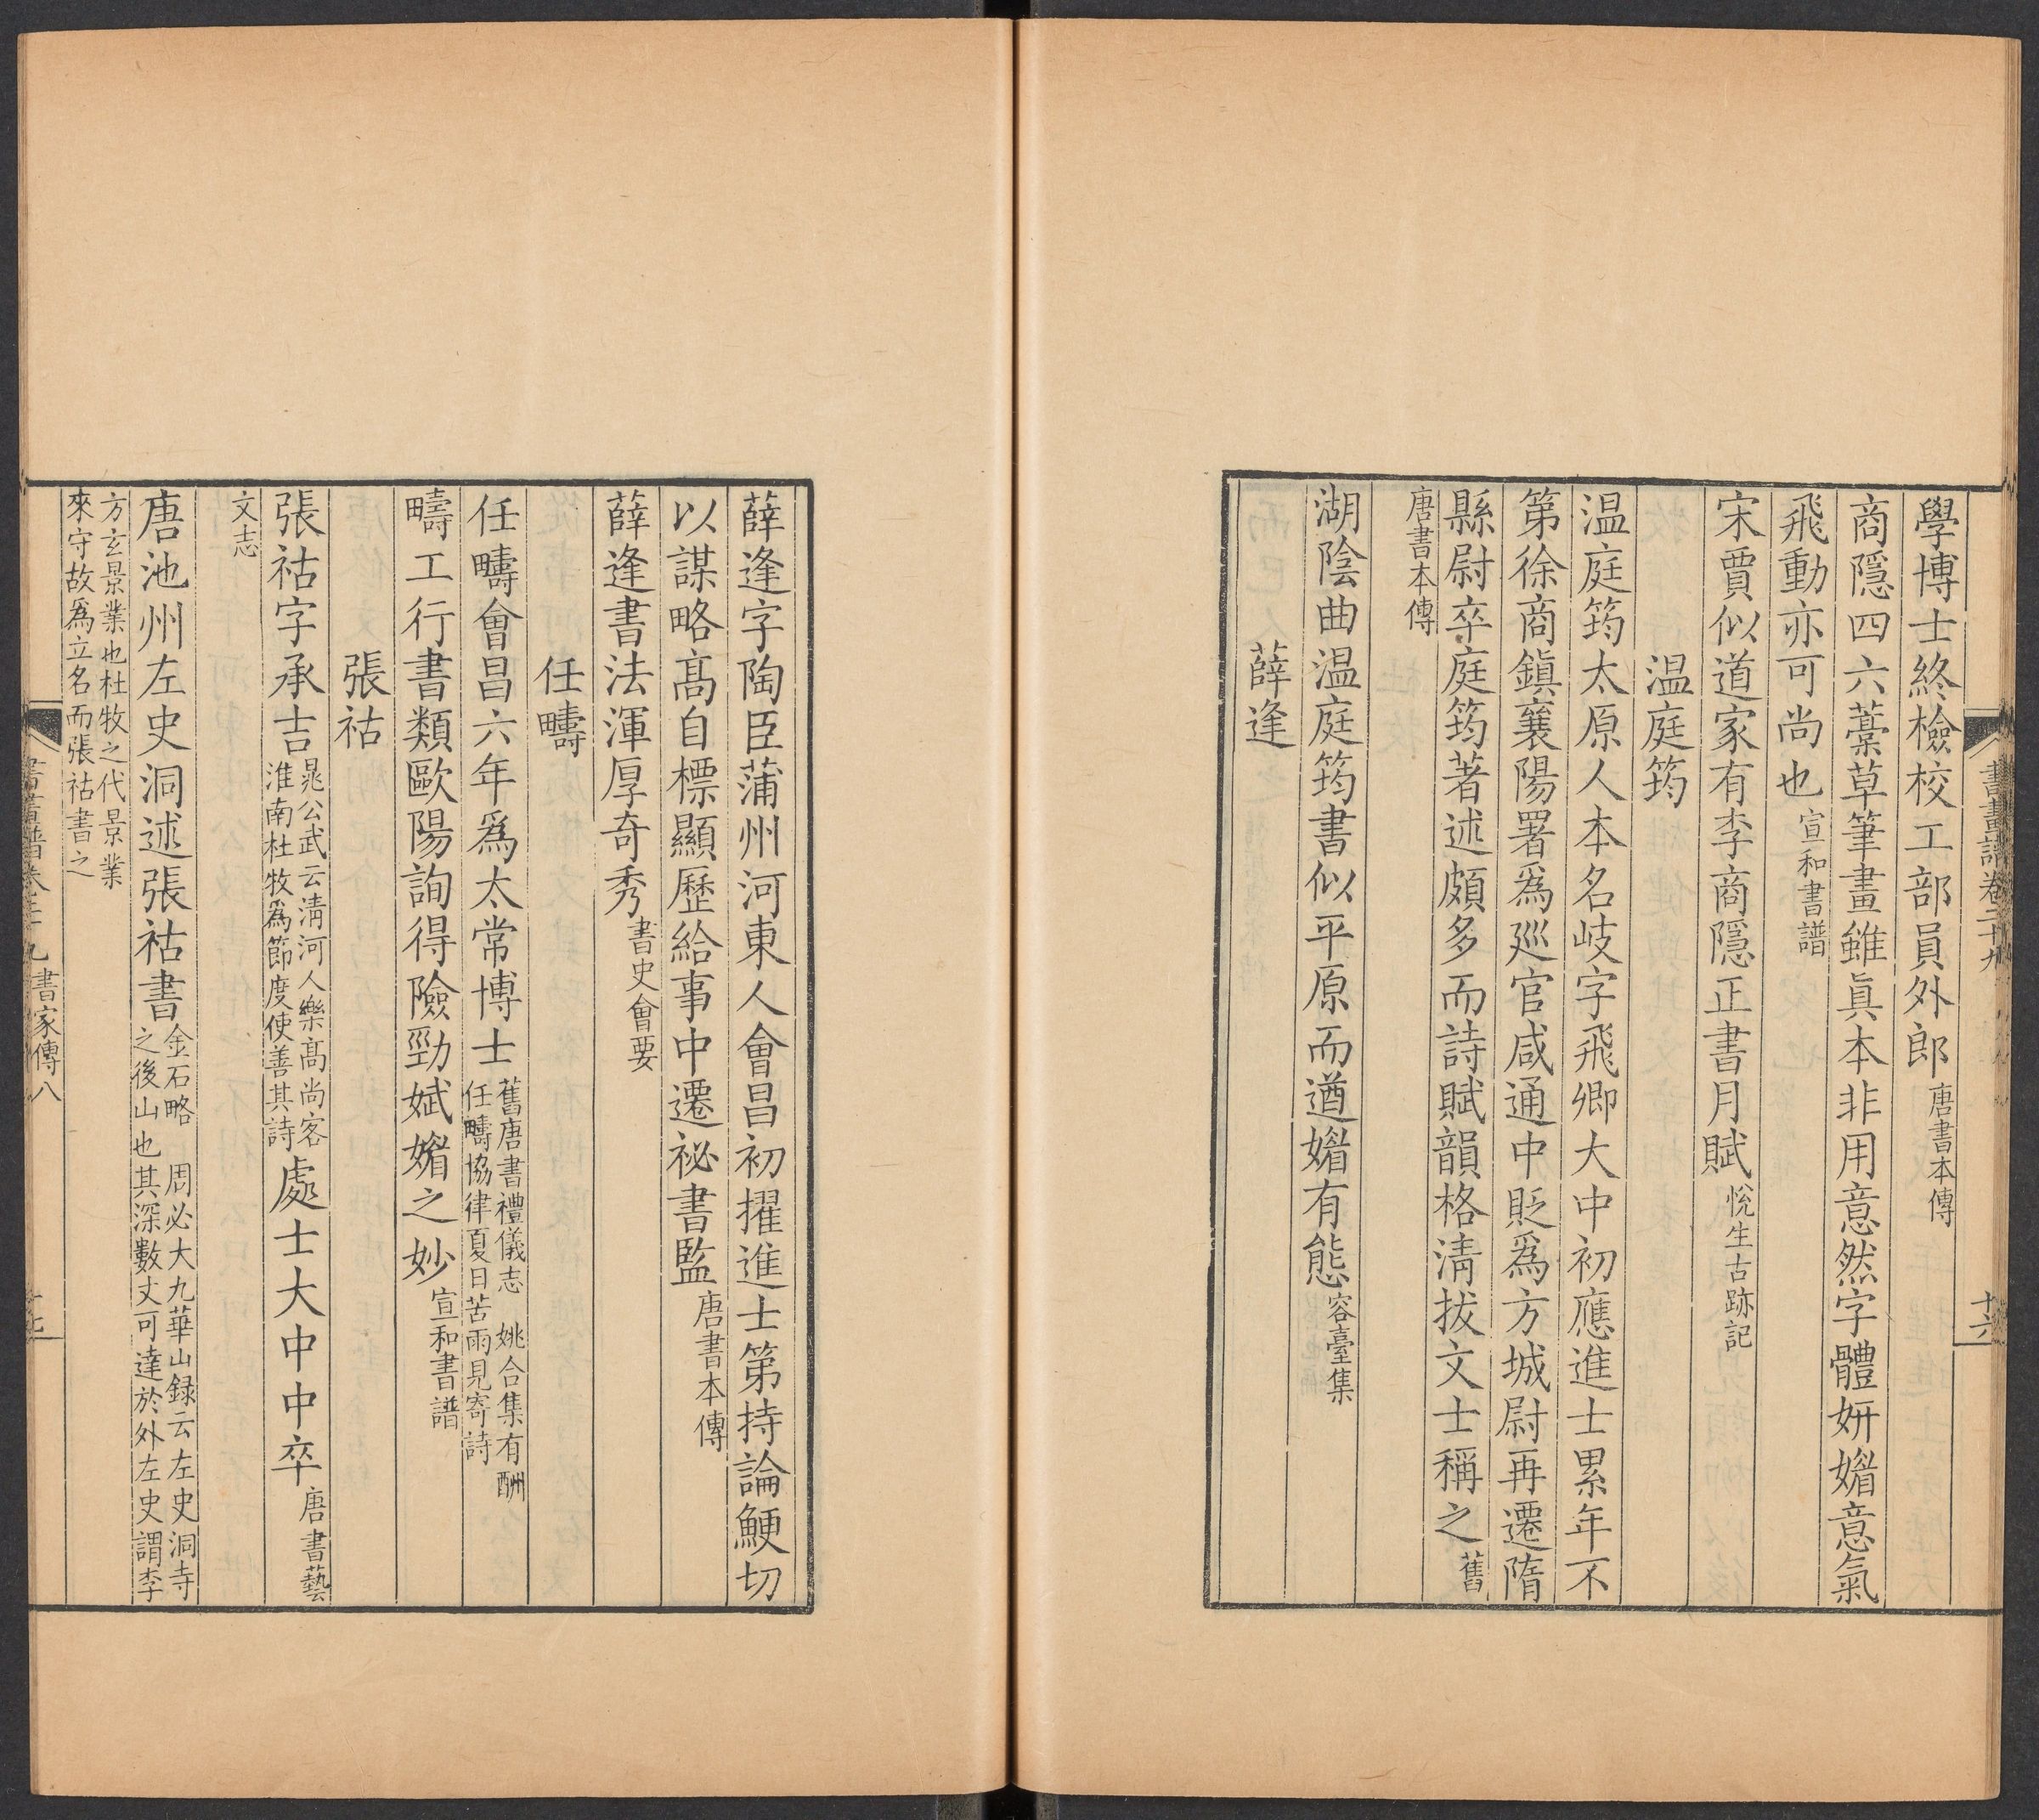 書畫譜卷二十九
十六
學博士終檢校工部員外郎唐書本傳
商隱四六藁草筆畫雖眞本非用意然字體姸媚意氣
飛動亦可尚也宣和書譜
宋賈似道家有李商隱正書月賦悅生古跡記
温庭筠
温庭筠太原人本名岐字飛卿大中初應進士累年不
第徐商鎭襄陽署爲廵官咸通中貶爲方城尉再遷隋
縣尉卒庭筠著述頗多而詩賦韻格淸拔文士稱之舊
唐書本傳
湖陰曲温庭筠書似平原而遒媚有態容臺集
薛逢
薛逢字陶臣蒲州河東人會昌初擢進士第持論鯁切
以謀略髙自標顯歷給事中遷祕書監唐書本傳
薛逢書法渾厚奇秀書史會要
任疇
任疇會昌六年爲太常博士舊唐書禮儀志 姚合集有酬
任疇協律夏日苦雨見寄詩
疇工行書類歐陽詢得險勁娬媚之妙宣和書譜
張祜
張祜字承吉晁公武云淸河人樂髙尚客
淮南杜牧爲節度使善其詩處士大中中卒唐書藝
文志
唐池州左史洞述張祜書金石略 周必大九華山録云左史洞寺
之後山也其深數丈可達於外左史謂李
方玄景業也杜牧之代景業
來守故爲立名而張祜書之
書畫譜卷二十九 書家傳八
十七